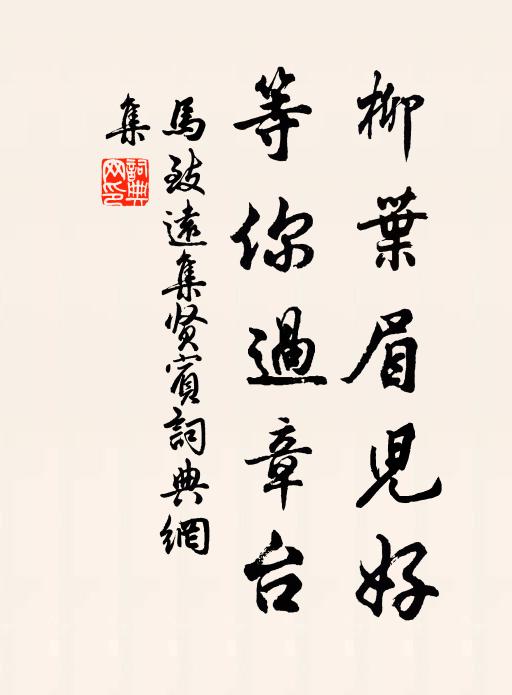 柳葉眉児好
等你過章台
馬致遠集贤賓詞典網
集
詞典網印